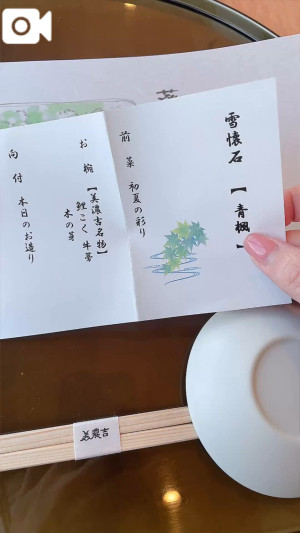 雪懐石 【青楓】
前菜 初夏の彩り
お椀 【美濃吉名物】
鯉こく 牛蒡
木の芽
向付 本日のお造り
美濃吉